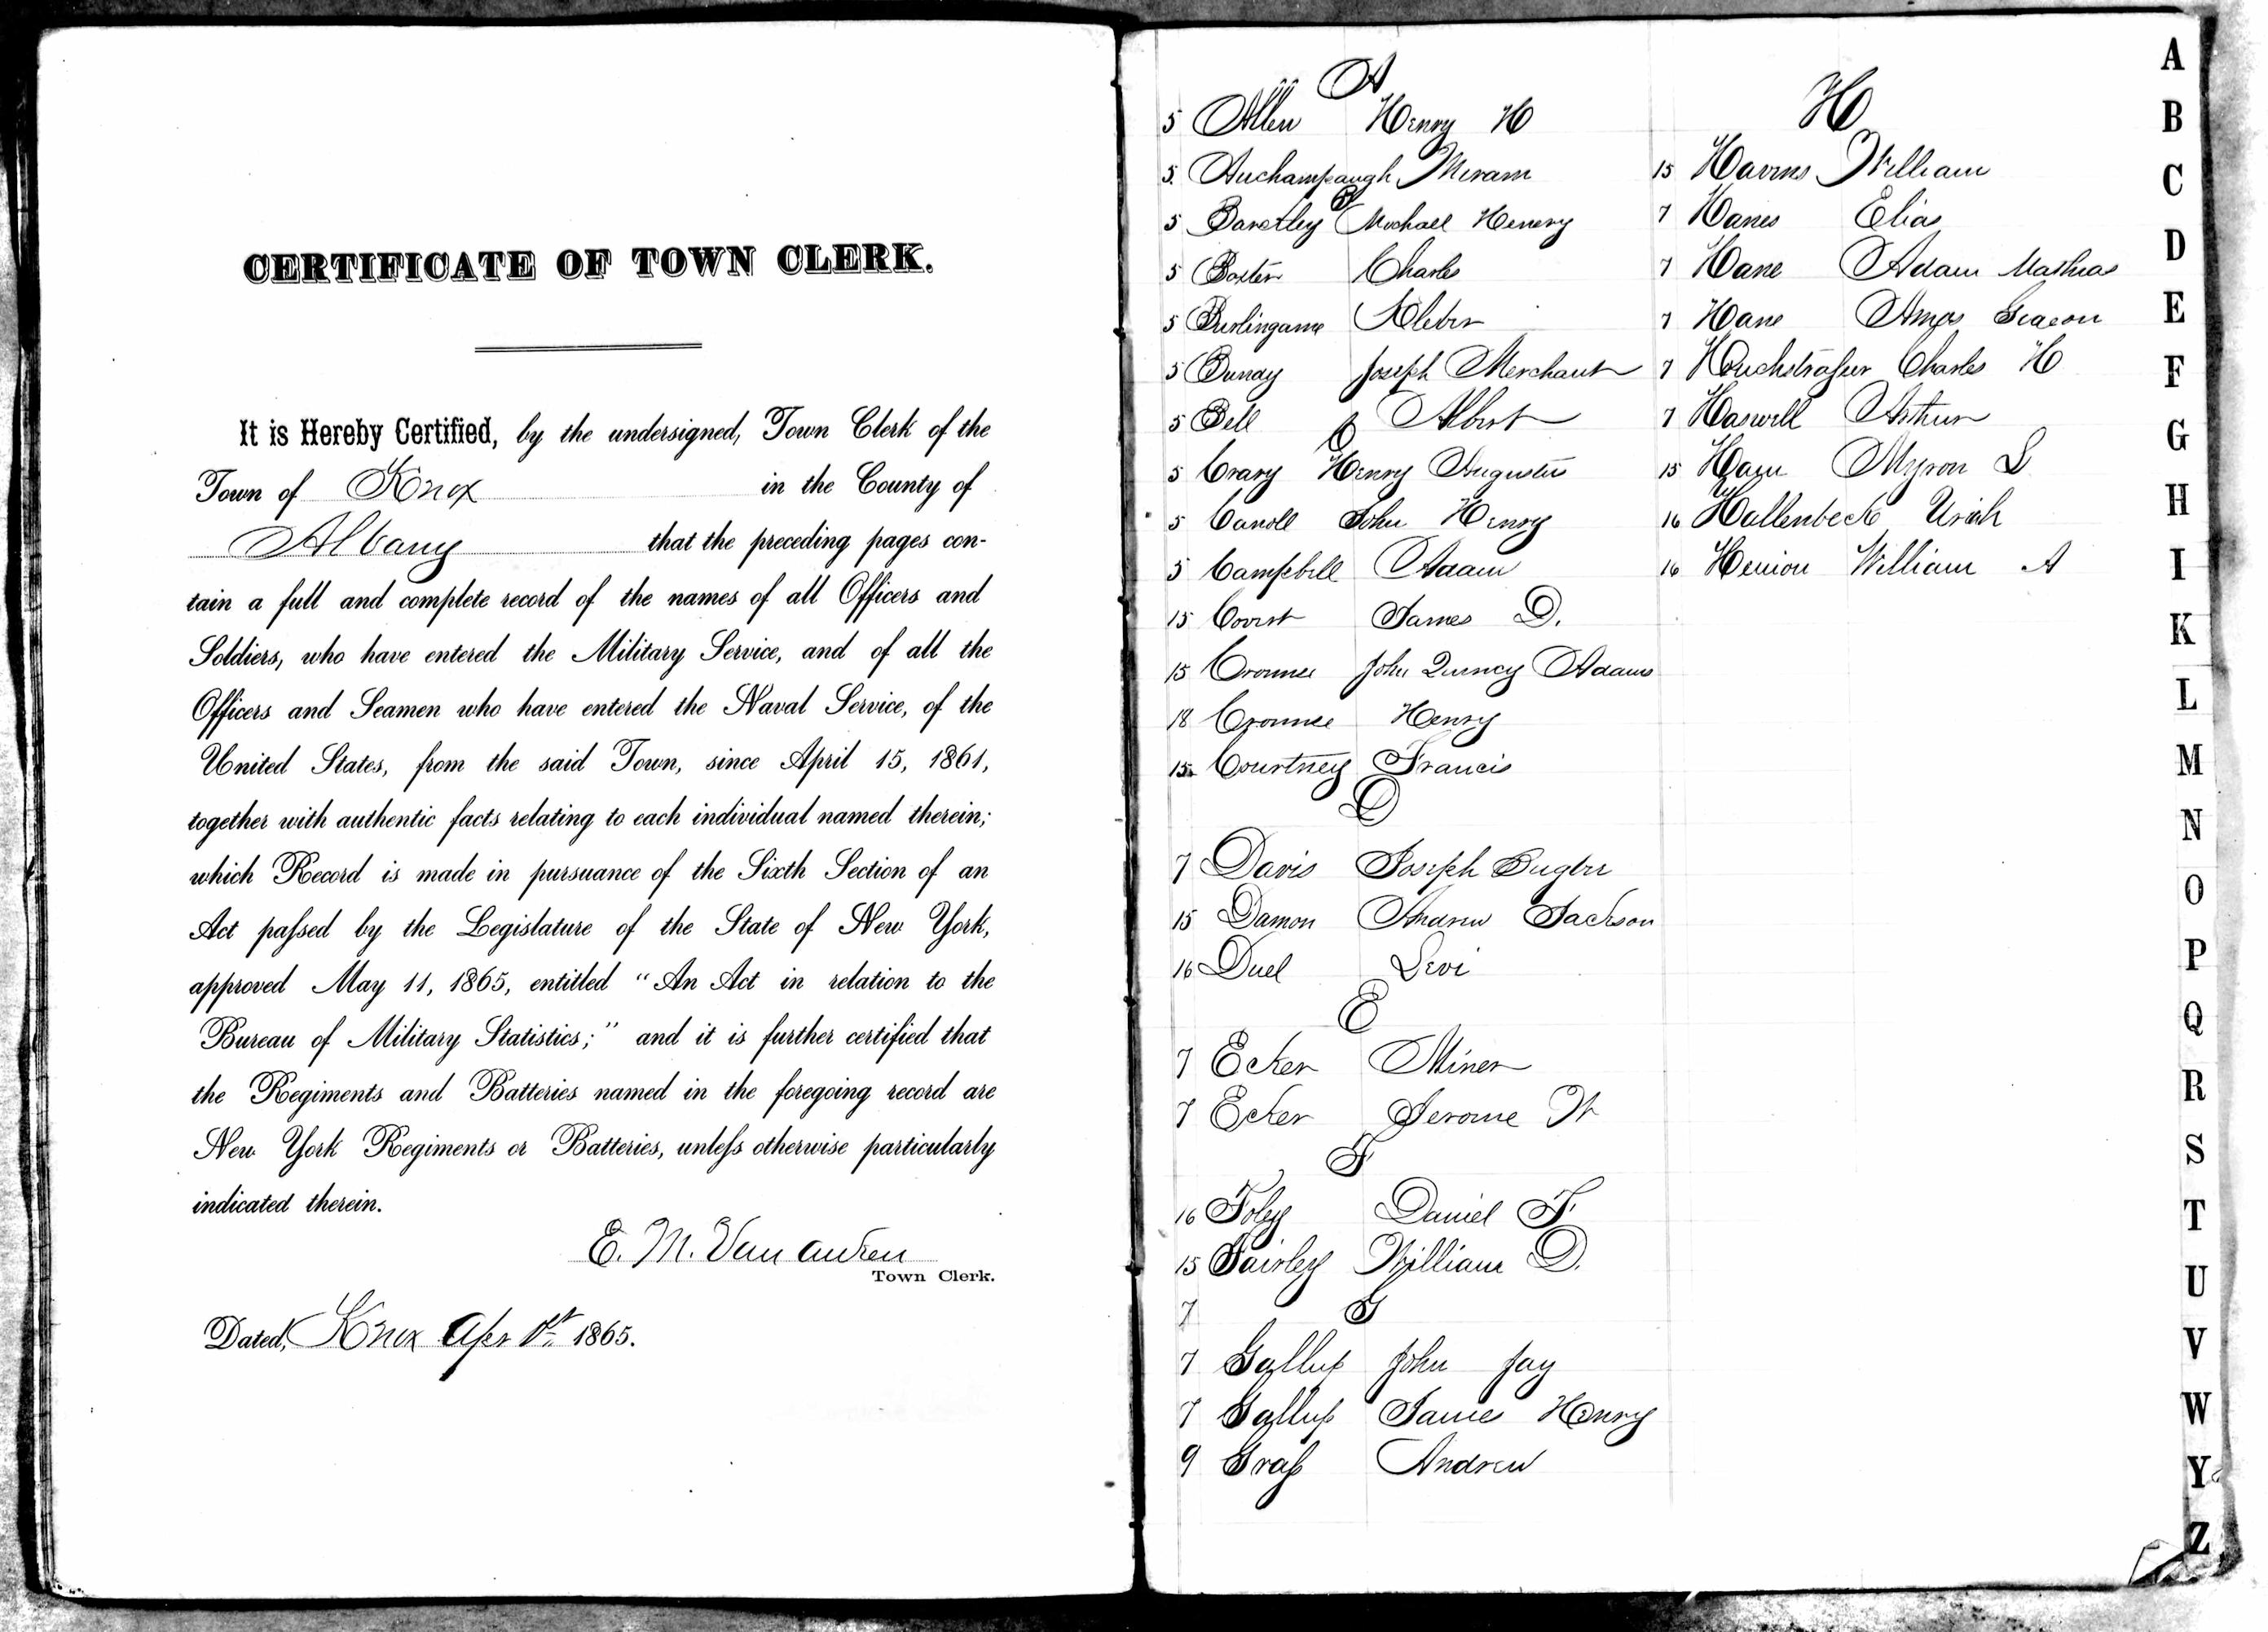 CERTIFICATE OF TOWN CLERK.
It is Hereby Certified, by the undersigned, Town Clerk of the
Town of Knox in the County of
Albany that the preceding pages con-
tain a full and complete record of the names of all Officers and
Soldiers, who have entered the Military Service, and of all the
Officers and Seamen who have entered the Naval Service, of the
United States, from the said Town, since April 15, 1861,
together with authentic facts relating to each individual named therein;
which Record is made in pursuance of the Sixth Section of an
Act passed by the Legislature of the State of New York,
approved May 11, 1865, entitled "An Act in relation to the
Bureau of Military Statistics;" and it is further certified that
the Regiments and Batteries named in the foregoing record are
New York Regiments or Batteries, unless otherwise particularly
indicated therein.
E. M. Van auken
Town Clerk.
Dated, Knox Apr 1st 1865.
A
5 Allen Henry H
5. Auchampaugh Miram
B
5 Barckley Michael Henery
5 Baxter Charles
5 Burlingame Kleber
5 Bunay Joseph Merchant
5 Bell Albert
C
5 Crary Henry Augustus
5 Caroll John Henry
5 Campbell Adam
15 Covert James D.
15 Crounse John Quincy Adams
18 Crounse Henry
15 Courtney Francis
D
7 Davis Joseph Bugber
15 Damon Andrew Jackson
16 Duel Levi
E
7 Ecker Miner
7 Ecker Jerome W
F
16 Foley Daniel F.
15 Fairley William D.
7 G
7 Gallup John Jay
7 Gallup James Henry
9 Grass Andrew
H
15 Havens William
7 Hanes Elias
7 Hane Adam Mathias
7 Hane Amos Geaeon
7 Houchstrasser Charles H
7 Haswell Arthur
15 Ham Myron L
16 Hallenbeck Uriah
16 Henion William A
A
B
C
D
E
F
G
H
I
K
L
M
N
O
P
Q
R
S
T
U
V
W
Y
Z